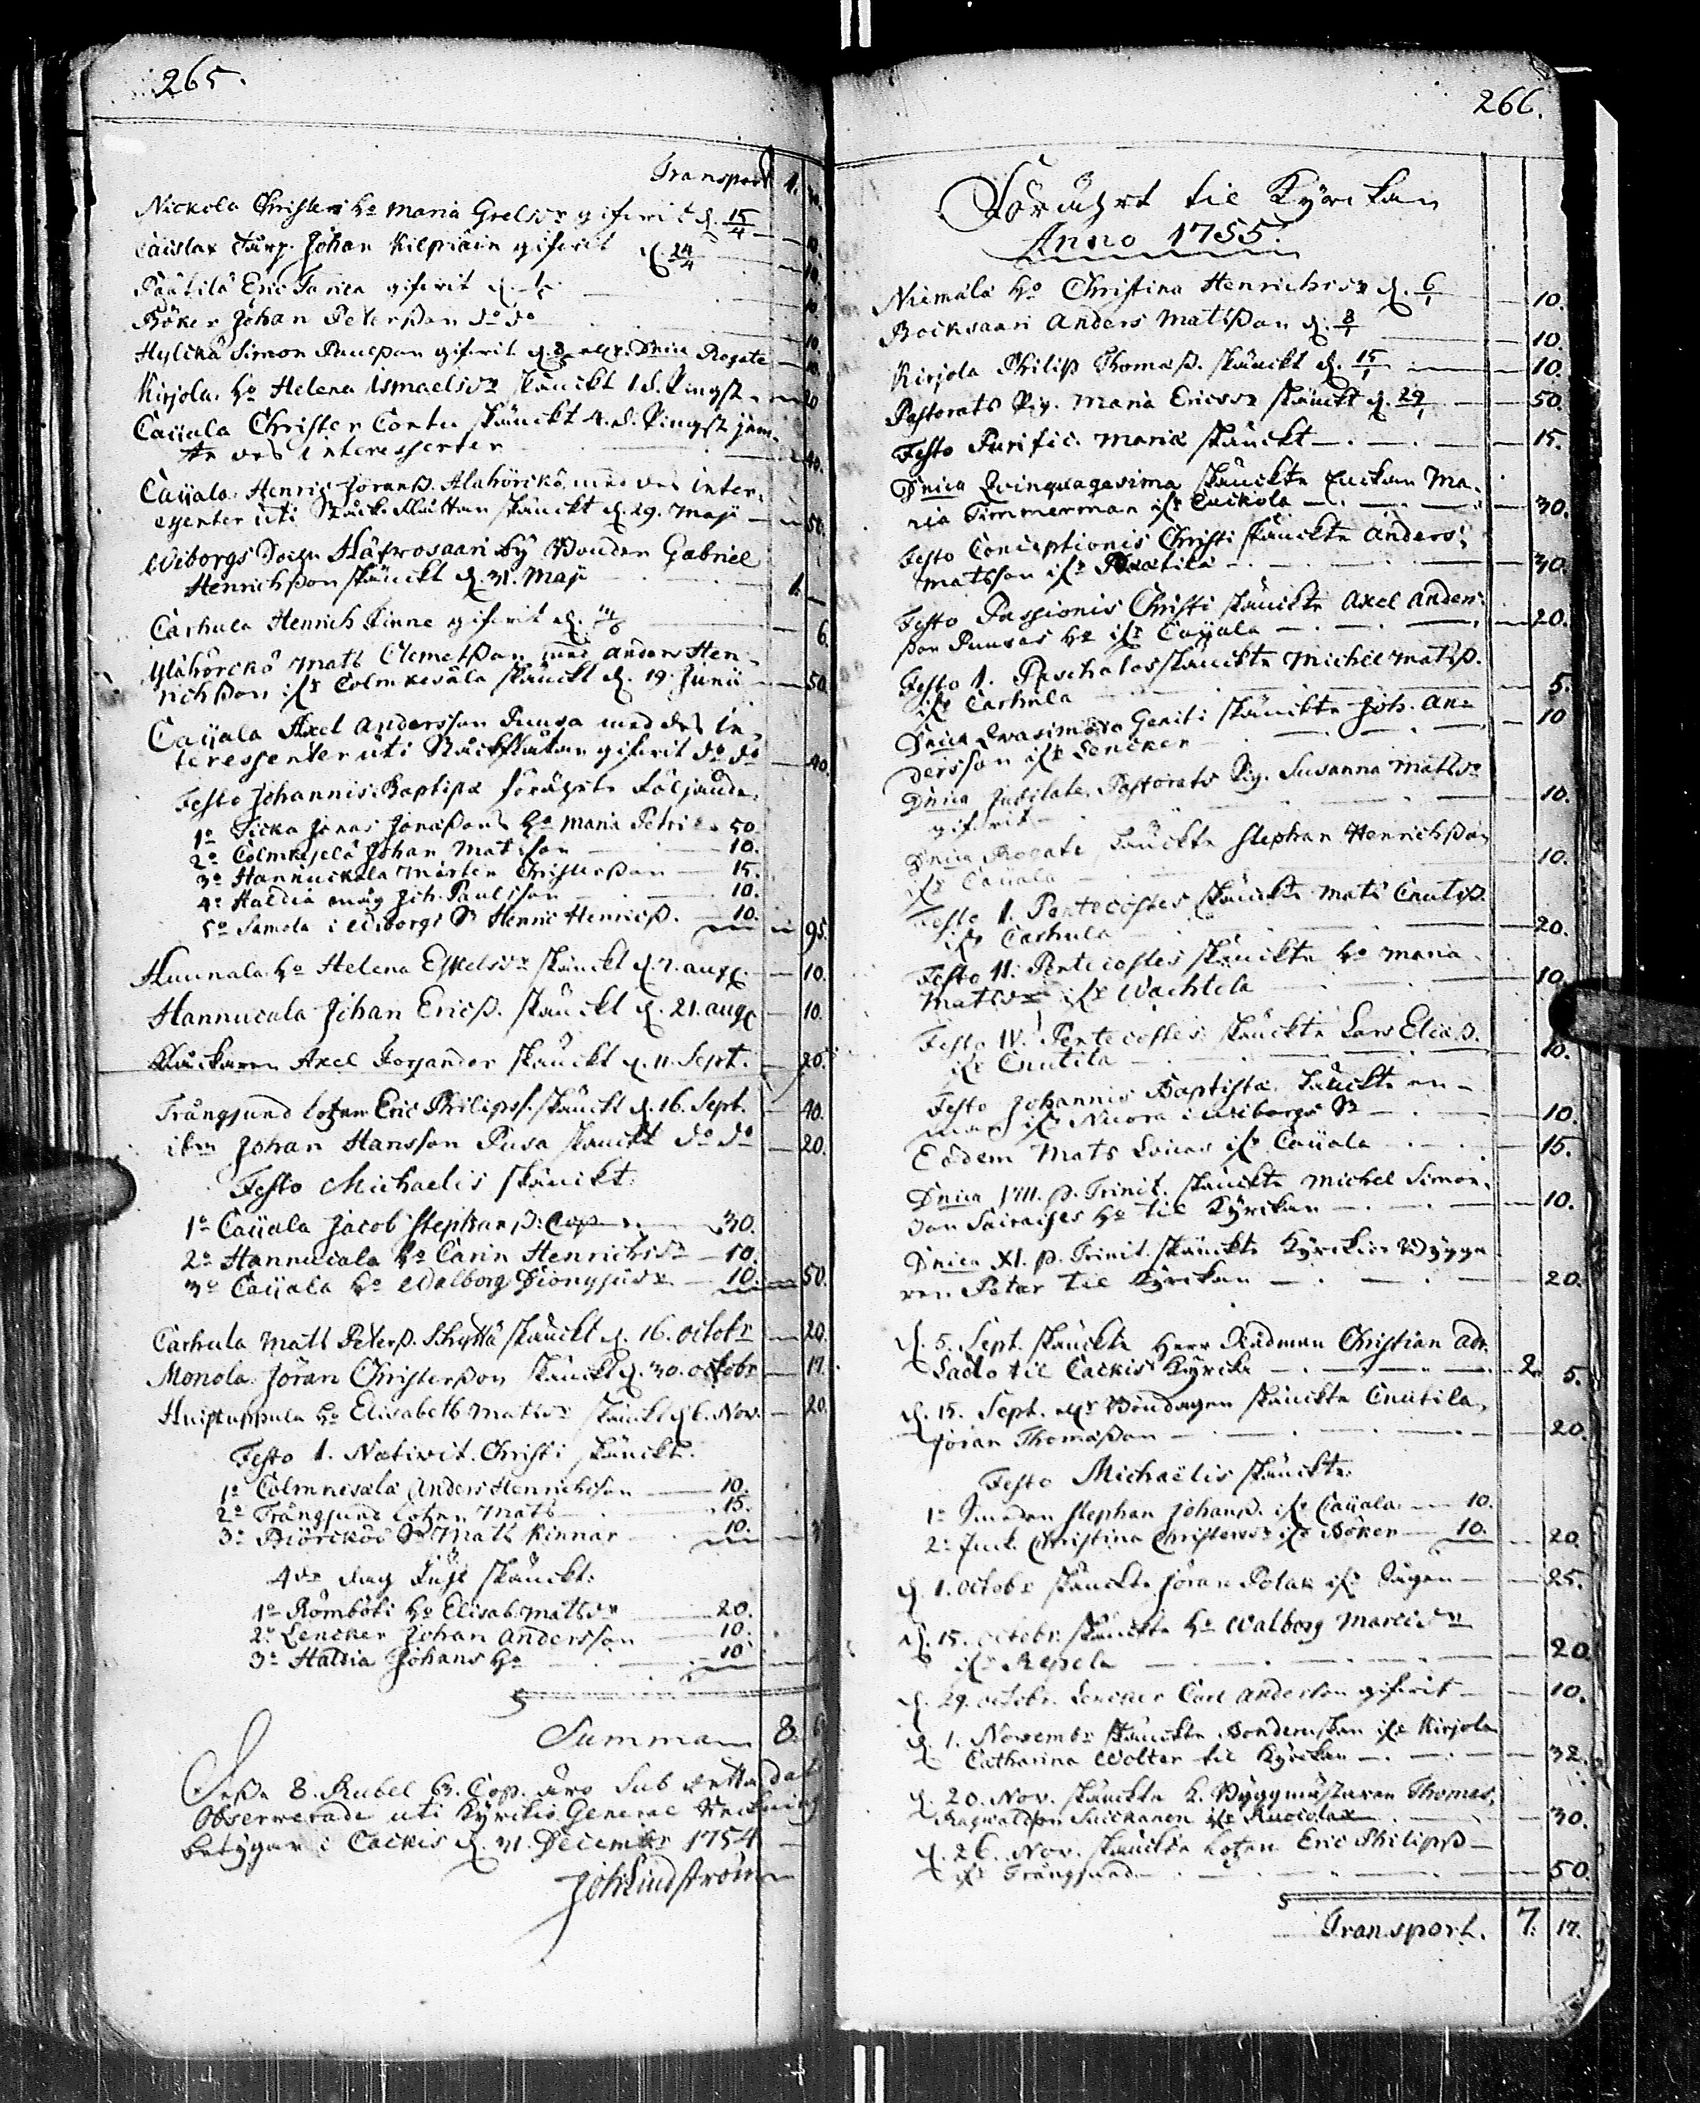 265.
Transport 1.
Nickola Christers hu Maria Grelsdr gifwit d. 15/4
Causlax Jürg. Johan Kilpiäin gifwit d. 24/4 10.
Päätilä Eric Tarica gifwit d. 10.
Böker Johan Peterßon do do 10.
Hylickä Simon Paulßon gifwit d. 8. Dnica Rogate 10.
Kirjola hu Helena Ismaelsdr skänckt 1 d. Pingst 20
Caijala Christer Contu skänckt 4. d. Pingst jäm-
te des interessenter 40.
Caijala Henric Jöranß. Alahörckö med des inter-
essenter uti Skäls skiuttan skänckt d. 29. Maji 50.
Wiborgs Sochn Häfwrosaari by Bonden Gabriel
Henrichßon skänckt d. 31. Maji 1. —
Carhula Henrich Pinne gifwit d. 6.
Ylähörckö Mats Clemetßon med Anders Hen-
richßon ifr Colmkesälä skänckt d. 19. Junii 50
Caijala Axel Andersson Punsa med des in-
teressenter uti gifwit do do 40.
Festo Johannis Baptistæ förährte följande:
1o Ticka Jonas Jonaßons hu Maria Petri 50.
2o Colmkeselä Johan Matsson 10.
3o Hannuckala Mårten Christerßon 15.
4o Haldia måg Joh. Paulsson 10.
5o Samola i Wiborgs Sn Henric Henricß. 10. 95.
Hunnala hu Helena Eskelsdr skänckt d. 7. Aug. 10.
Hannucala Johan Ericß. skänckt d. 21. Aug. 10.
Klåckaren Axel Forsander skänckt d. 11. Sept. 20.
Trångsund Lotzen Eric Philipß. skänckt d. 16. Sept. 40.
item Johan Hansson Pusa skänckt do do 20.
Festo Michaelis skänckt:
1o Caijala Jacob Stephanß: Cop 30.
2o Hannucala hu Carin Henrichsdr 10.
3o Caijala hu Walborg Dionysiidr 10. 50.
Carhula Mats Peterß. Skyttä skänckt d. 16. Octobr 20.
Monola Jöran Christerßon skänckt d. 30. Octobr 17.
hu Elisabeth Matsdr skänckt d. 6. Nov. 20.
Festo 1. Nativit. Christi skänckt:
1o Colmkesälä Anders Henrichsson 10.
2o Trångsund Lotzen Mats 15.
3o Biörckö Sn Mats Kinnar 10.
4de dag Juhl skänckt:
1o Römböti hu Elisab. Matsdr 20.
2o Lencker Johan Andersson 10.
3o Haldia Johans hu 10
Summa 8.
Deße 8. Rubel 63. Cop. äro sub dato
Observerade uti Kyrckio General Räckning
betygar i Cackis d. 31. Decembr 1754
Joh Lindström
266.
Förährt til Kyrckan
Anno 1755.
Niemälä hu Christina Henrichsdr d. 6/1 10.
Bocksaari Anders Matsßon d. 8/1 10.
Kirjola Philip Thomaß. skänckt d. 15/1 10.
Pastorats Pig. Maria Ericsdr skänckt d. 29/1 50.
Festo Purific. Mariæ skänckt 15.
Dnica Quinquagesima skänckte Enckan Ma-
ria Timmerman ifr Cuckola 30.
Festo Conceptionis Christi skänckte Anders
Matsson ifr Päätilä 30.
Festo Passionis Christi skänckte Axel Anders-
ßon Punsas hu ifr Caijala 20.
Festo 1. Paschatos skänckte Michel Matsß.
ifr Carhula 5.
Dnica Quasimodo Geniti skänckte Joh. An-
dersson ifr Lencker 10
Dnica Jubilate, Pastorats Pig. Susanna Matsdr
gifwit 10.
Dnica Rogate skänckte Stephan Henrichßon
ifr Caijala 10.
Festo 1. Pentecostes skänckte Mats Cnutß.
ifr Carhula 20.
Festo II. Pentecostes skänckte hu Maria
Matsdr ifr Wachtela 10.
Festo IV. Pentecostes skänckte Lars Eliaß.
ifr Cnutila 10.
Festo Johannis Baptistæ skänckte en
man ifr Nuora i Wiborgs Sn 10.
Eodem Mats Lucas ifr Caijala 15.
Dnica VIII. p. Trinit. skänckte Michel Simon-
son Sairaises hu til Kyrckan 10.
Dnica XI. p. Trinit. skänckte Kyrckio Bygga-
ren Petar til Kyrckan 20.
d. 5. Sept. skänckte Herr Rådman Christian Adr.
Lado til Cackis Kyrcka 2. 5.
d. 15. Sept. Böndagen skänckte Cnutila
Jöran Thomaßon 20.
Festo Michaëlis skänckte:
1o Smeden Stephan Johanß. ifr Caijala 10.
2o Jnck. Christina Christersdr ifr Böker 10. 20.
d. 1. Octobr skänckte Jöran Polak ifr Sågen 25.
d. 15. Octobr. skänckte hu Walborg Marcidr
ifr Repola 20.
d. 29. Octobr. Lencker Carl Anderson gifwit 10.
d. 1. Novembr skänckte Bondenskan ifr Kirjola
Catharina Wolter til Kyrckan 32.
d. 20. Nov. skänckte K. Byggmästaren Thomas
Ragwaldßon Suckanen ifr Ruocolax 30.
d. 26. Nov. skänckte Lotzen Eric Philipß
ifr Trångsund 50.
Transport. 7. 17.